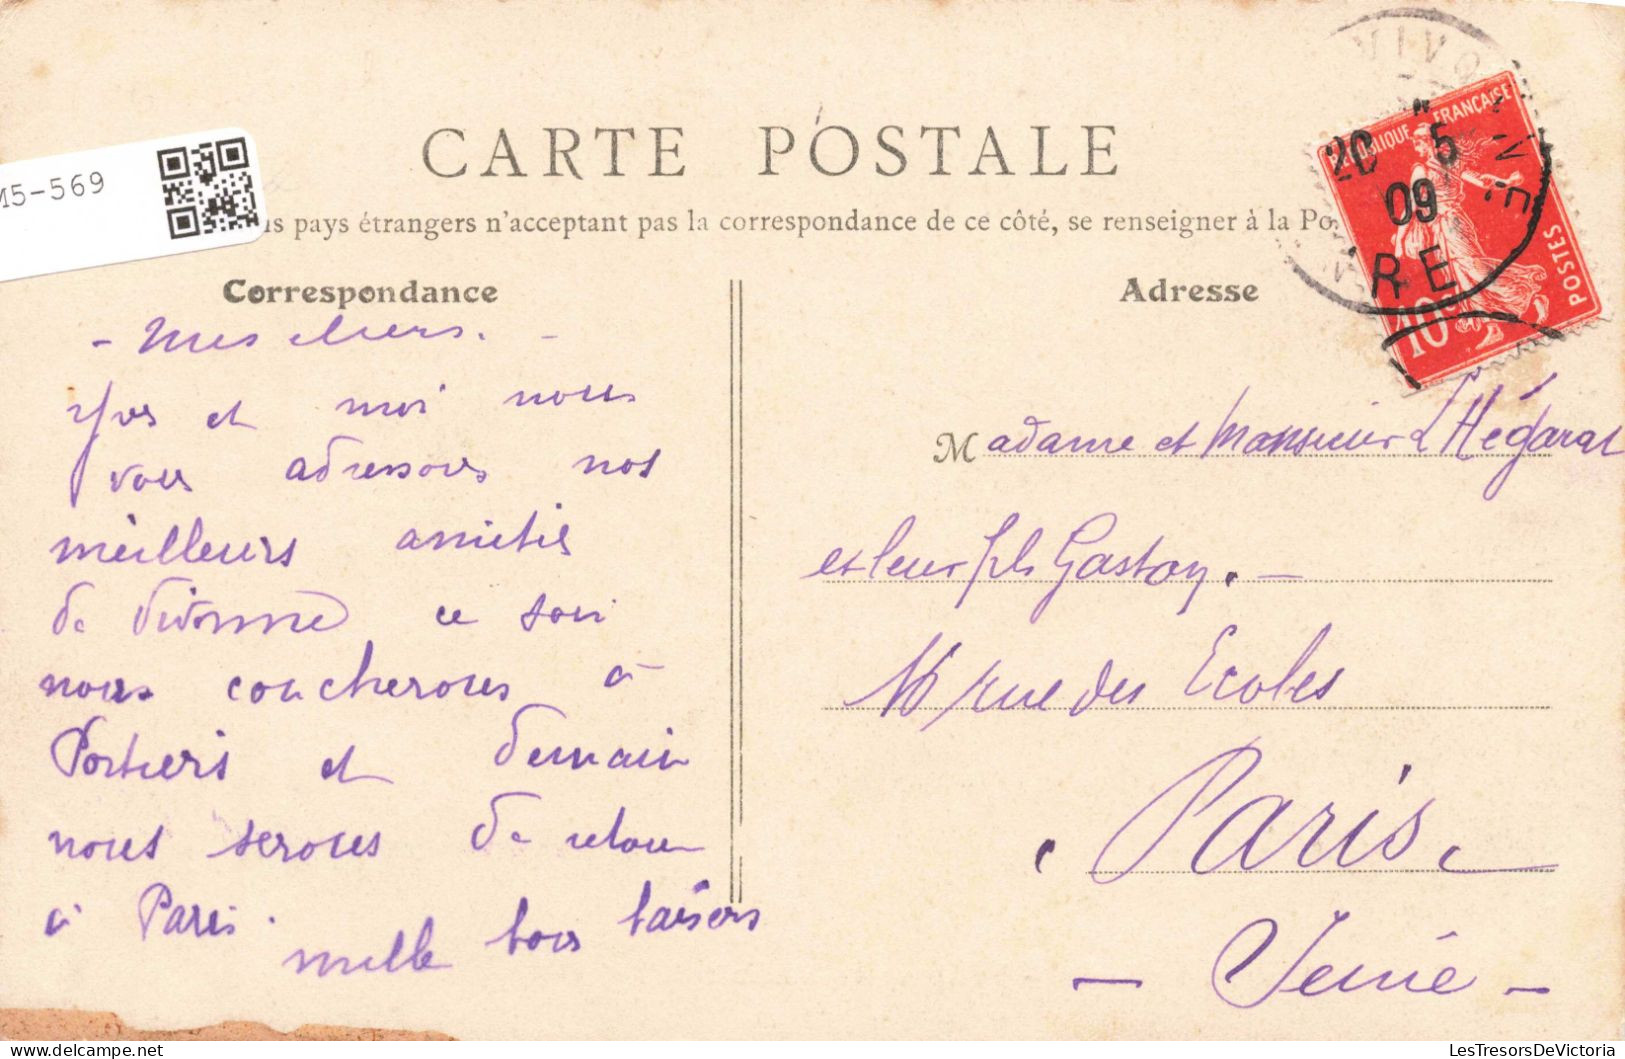 M5-569
CARTE POSTALE
pays étrangers n'acceptant pas la correspondance de ce côté, se renseigner à la Po
Correspondance
- Mes chers. -
Yves et moi nous
vous adressons nos
meilleurs amitiés
de Divonne ce soir
nous coucherons à
Poitiers et demain
nous serons de retour
à Paris.
mille bons baisers
Adresse
Madame et Monsieur L'Hégarat
et leur fils Gaston. -
16 rue des Ecoles
Paris.
- Seine -
RÉPUBLIQUE FRANÇAISE
POSTES
10c
20 5
09
RE
LesTresorsDeVictoria